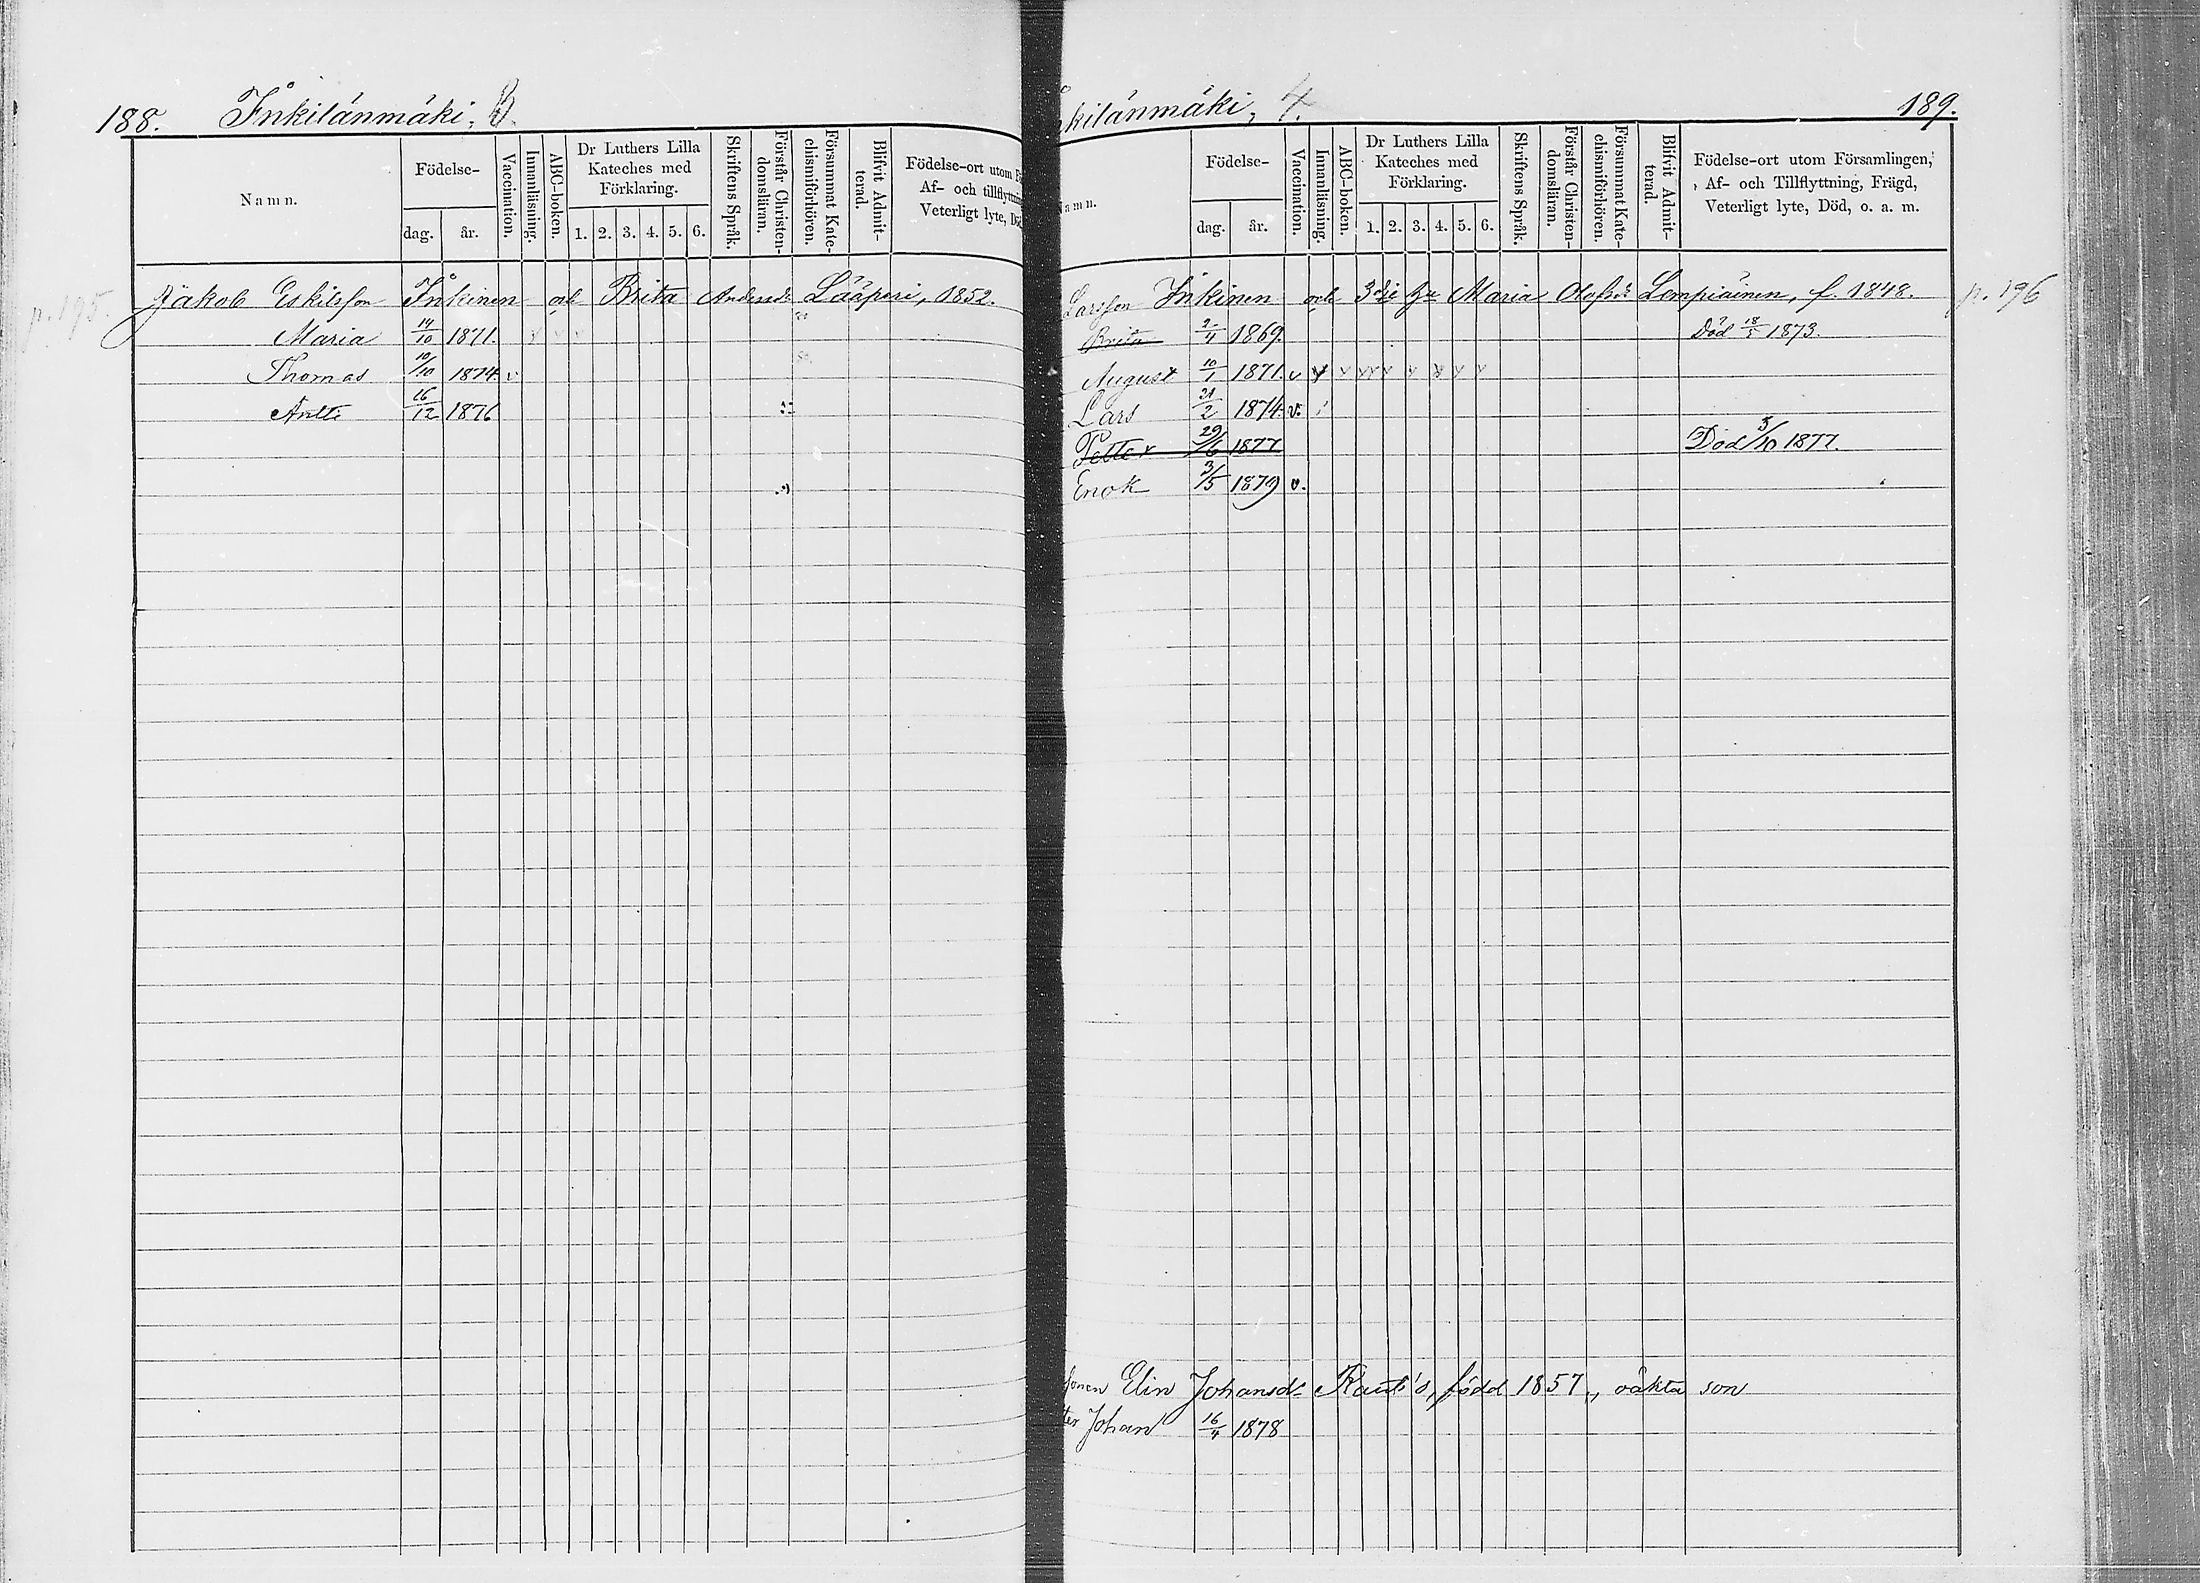 188. Inkilänmäki, 3.
Namn. Födelse- dag. år. Vaccination. Innanläsning. ABC-boken. Dr Luthers Lilla Kateches med Förklaring. 1. 2. 3. 4. 5. 6. Skriftens Språk. Förstår Christendomsläran. Försummat Katechismiförhören. Blifvit Admitterad. Födelse-ort utom
Af- och tillflyttning
Veterligt lyte, Död
p. 195. Jakob Eskilsson Inkinen och Brita Andersd: Lääperi, 1852.
Maria 14/10 1871.
Thomas 10/10 1874. v
Antti 16/12 1876
kilänmäki, 4. 189.
amn. Födelse- dag. år. Vaccination. Innanläsning. ABC-boken. Dr Luthers Lilla Kateches med Förklaring. 1. 2. 3. 4. 5. 6. Skriftens Språk. Förstår Christen-domsläran. Försummat Kate-chismiförhören. Blifvit Admit-terad. Födelse-ort utom Församlingen, Af- och Tillflyttning, Frägd, Veterligt lyte, Död, o. a. m.
Larsson Inkinen och 3die Maria Olofsd: Lempiäinen, f. 1848. p. 196
Brita 2/4 1869. Död 18/5 1873.
August 10/1 1871. v x x x x x x x x
Lars 21/2 1874. v.
Petter 29/6 1877 Död 5/10 1877.
Enok 3/5 1879 v.
Elin Johansd: Rauti's, född 1857, oäkta son
ter Johan 16/4 1878